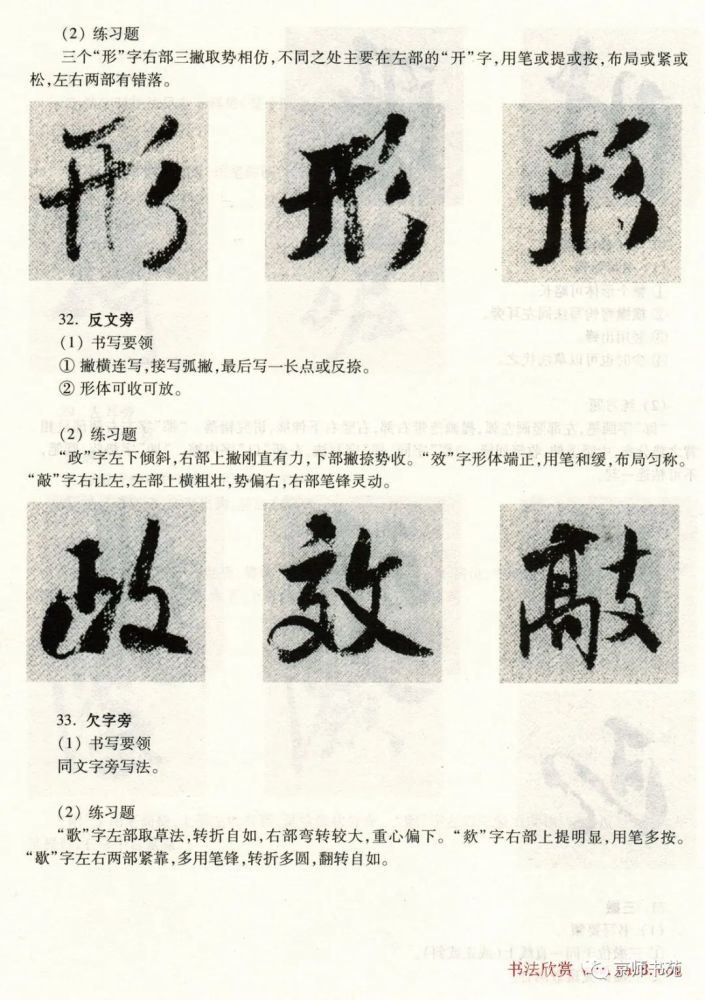 (2) 练习题
三个“形”字右部三撇取势相仿,不同之处主要在左部的“开”字,用笔或提或按,布局或紧或
松,左右两部有错落。
形 形 形
32. 反文旁
(1) 书写要领
① 撇横连写,接写弧撇,最后写一长点或反捺。
② 形体可收可放。
(2) 练习题
“政”字左下倾斜,右部上撇刚直有力,下部撇捺势收。“效”字形体端正,用笔和缓,布局匀称。
“敲”字右让左,左部上横粗壮,势偏右,右部笔锋灵动。
政 效 敲
33. 欠字旁
(1) 书写要领
同文字旁写法。
(2) 练习题
“歌”字左部取草法,转折自如,右部弯转较大,重心偏下。“欻”字右部上提明显,用笔多按。
“歇”字左右两部紧靠,多用笔锋,转折多圆,翻转自如。
书法欣赏
京师书苑